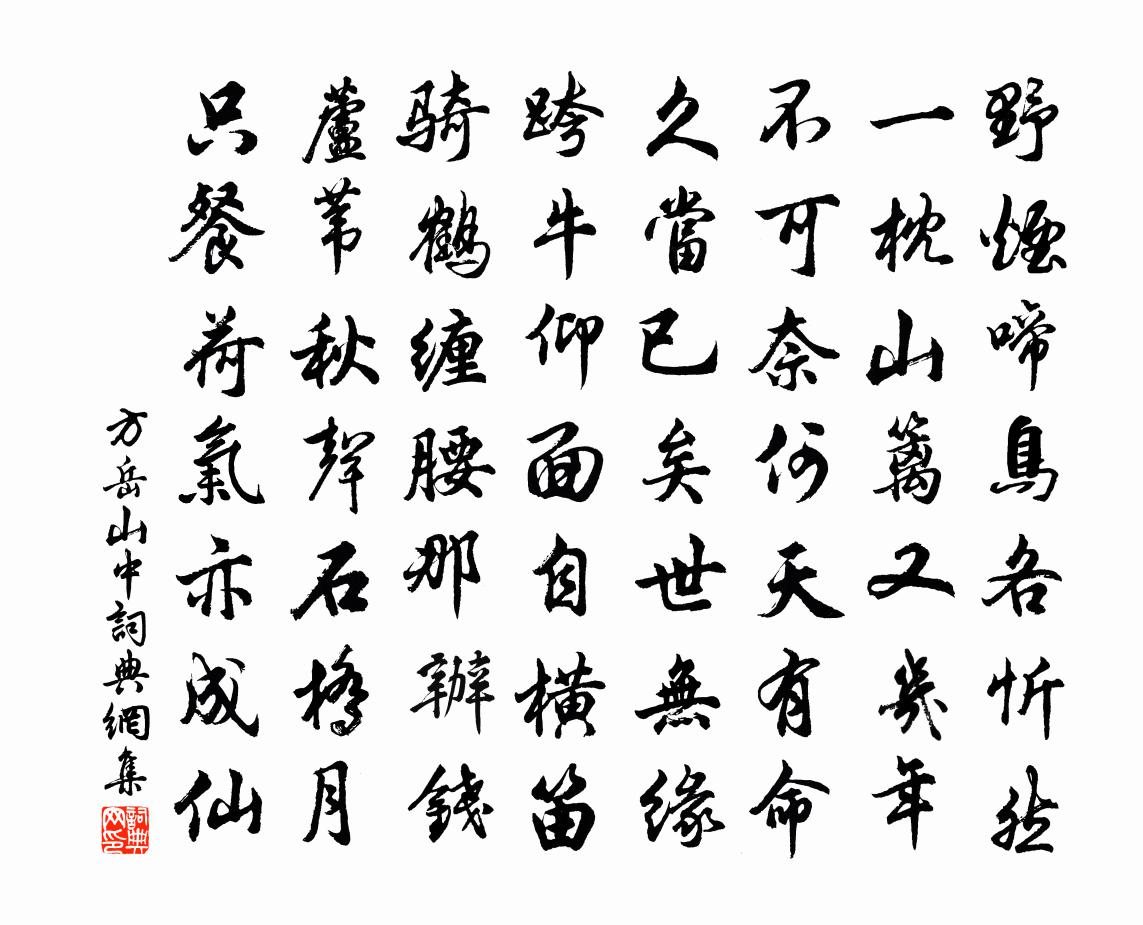 野煙啼鳥各忻然
一枕山篱又幾年
不可奈何天有命
久當已矣世無緣
跨牛仰面自橫笛
骑鶴缠腰那辦錢
蘆苇秋聲石橋月
只餐荷氣亦成仙
方岳山中詞典網集
詞典网印